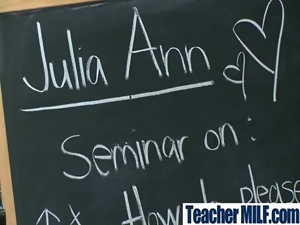 Julia Ann
Seminar on:
How to please
TeacherMILF.com